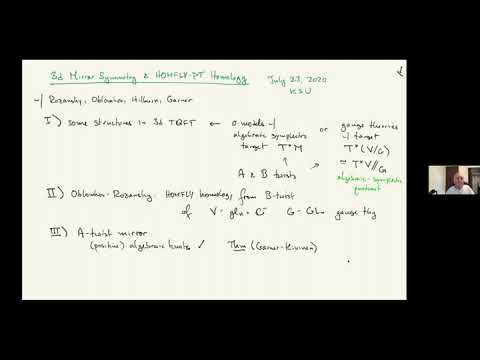 3d Mirror Symmetry & HOMFLY-PT Homology July 23, 2020
KSU
w/ Rozansky, Oblomkov, Hilburn, Garner
I) some structures in 3d TQFT ← σ-models w/ algebraic symplectic target T*M or gauge theories w/ target T*(V/G)
≈ T*V//G
algebraic-symplectic quotient
A & B twists
II) Oblomkov-Rozansky: HOMFLY homology from B-twist
of V = gl_n ⊕ C^n G = GL_n gauge thy
III) A-twist mirror
(positive) algebraic knots ✓ Thm (Garner-Kivinen)